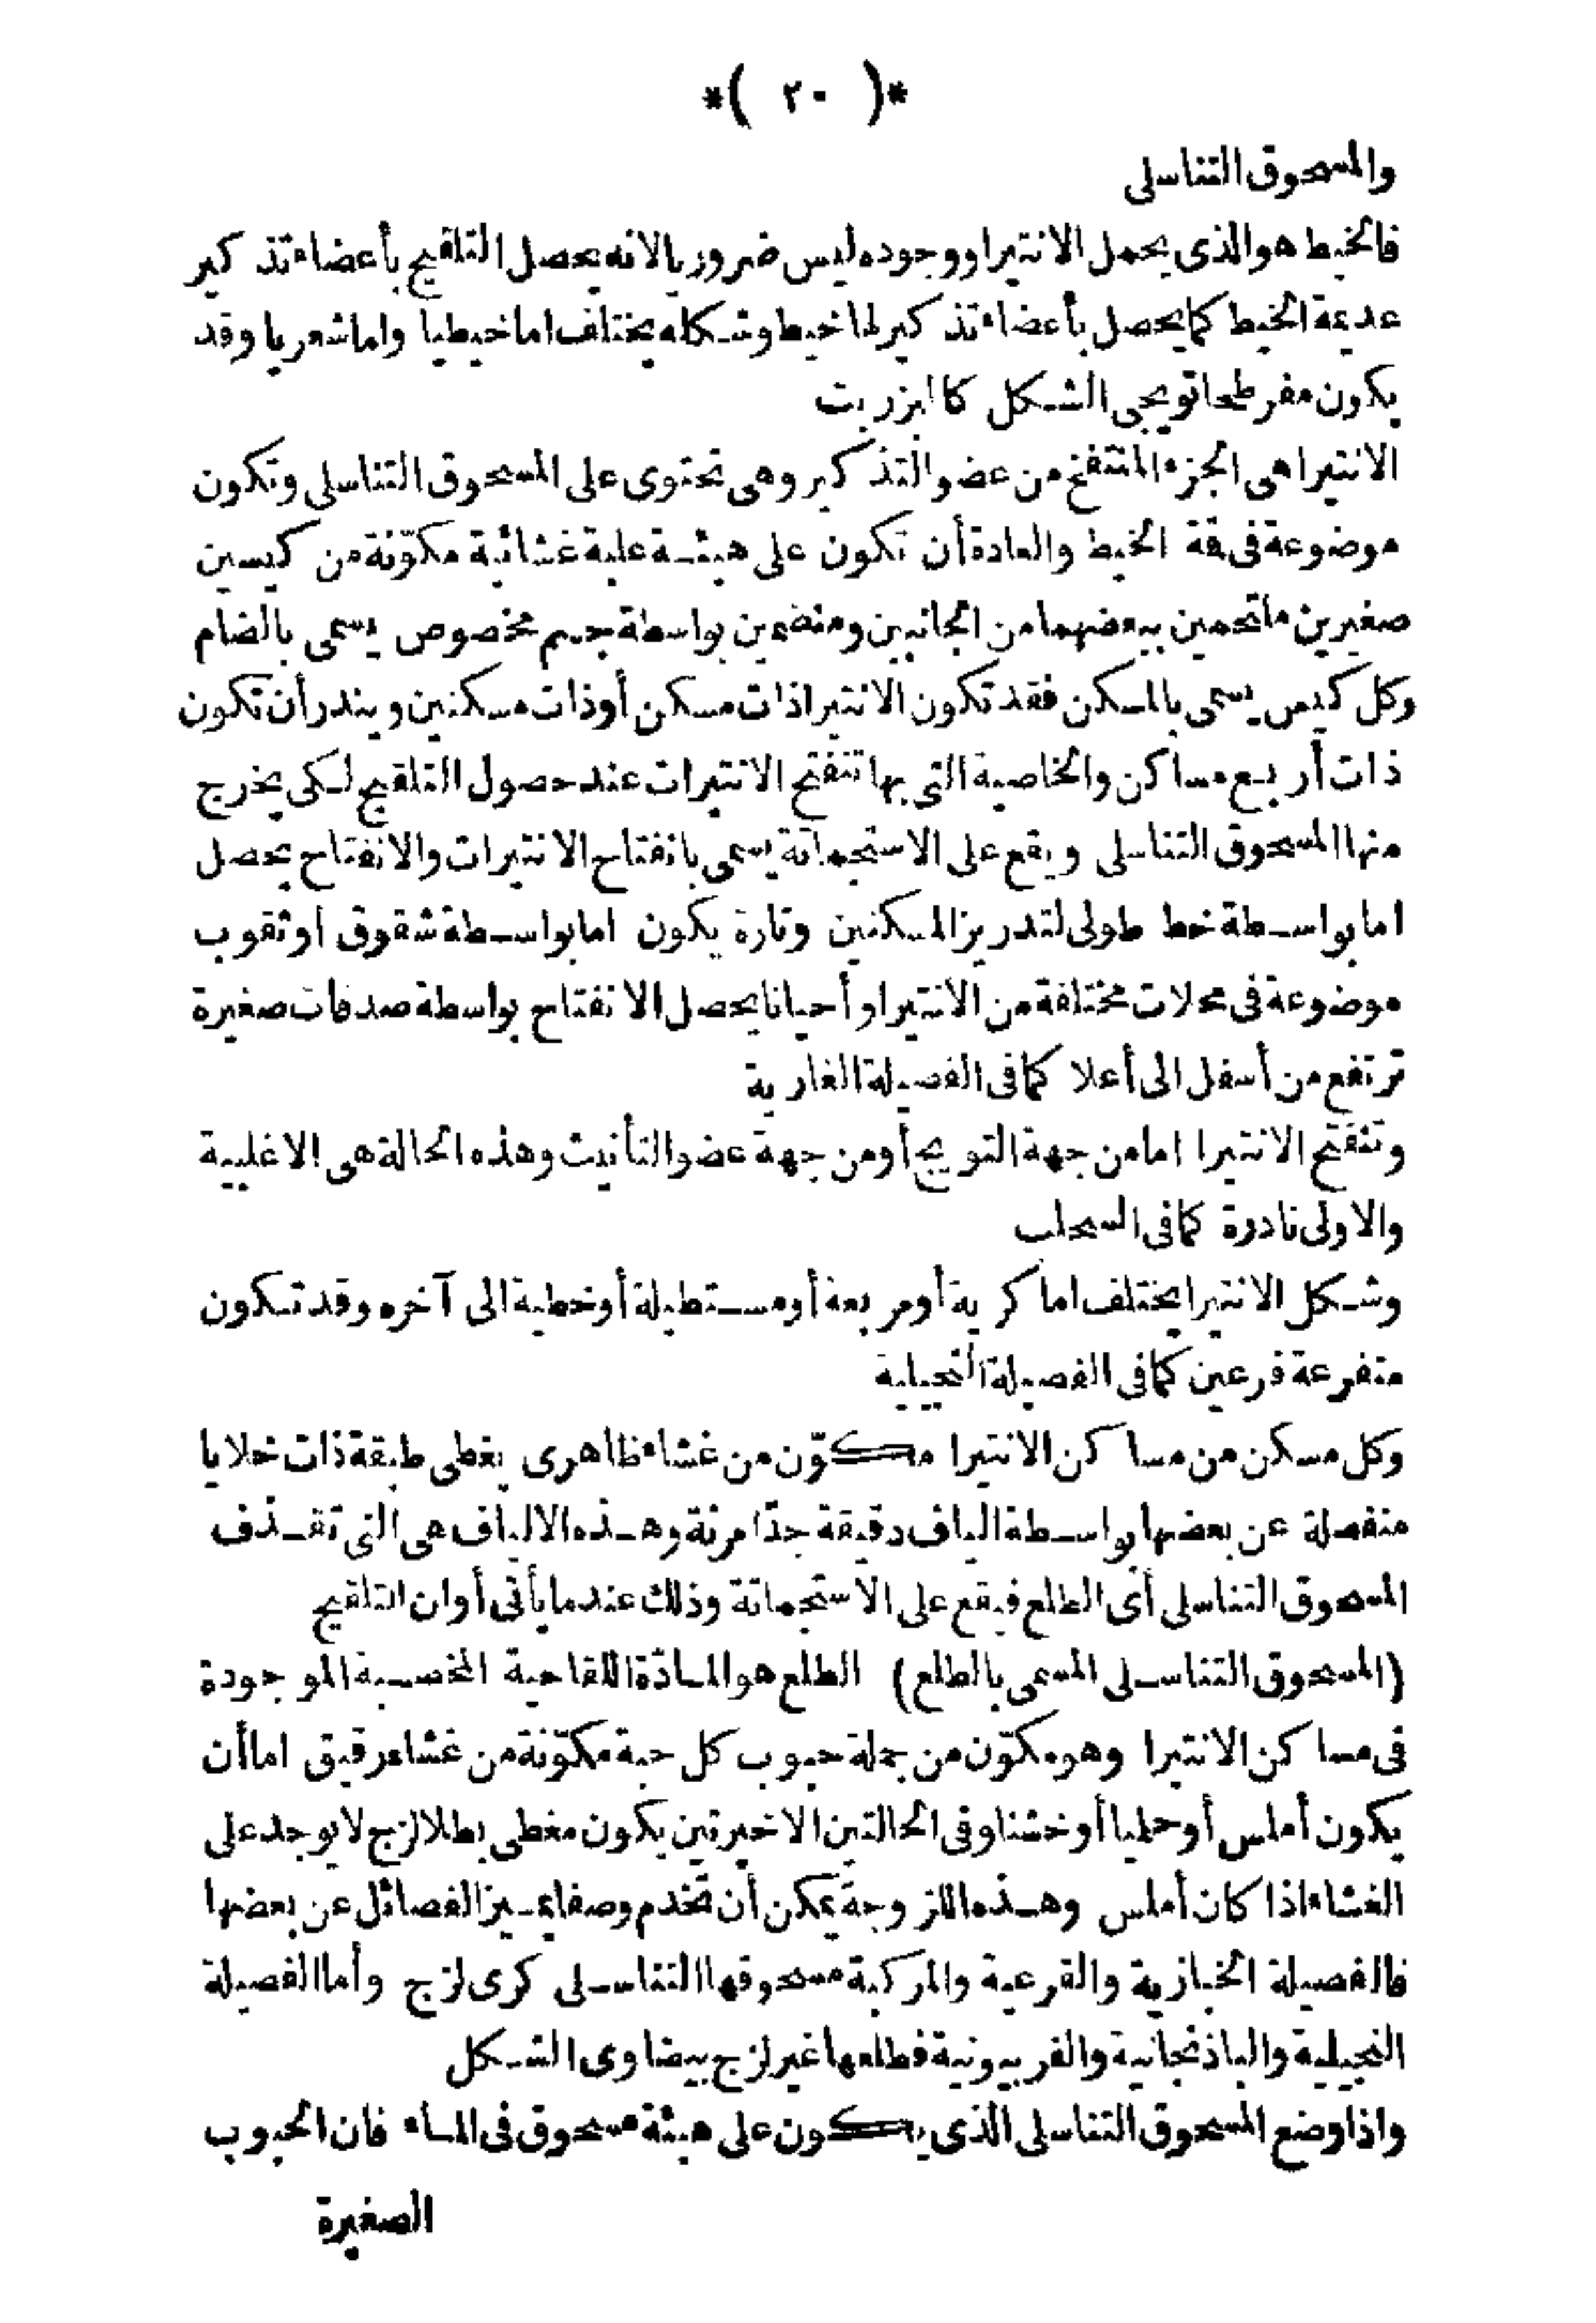 *( ٢٠ )*
والمسحوق التناسلى
فالخيط هو الذى يحمل الانتيرا ووجوده ليس ضروريا لانه يحصل التلقيح بأعضاء تذكير
عديمة الخيط كما يحصل بأعضاء تذكير لها خيط وشكله يختلف اما خيطيا واما شعريا وقد
يكون مفرطحا تويجى الشكل كالبزربت
الانتيرا هى الجزء المنتفخ من عضو التذكير وهى تحتوى على المسحوق التناسلى وتكون
موضوعة فى قة الخيط والعادة أن تكون على هيئة علبة غشائية مكوّنة من كيسين
صغيرين ملتحمين ببعضهما من الجانبين ومنضمين بواسطة جسم مخصوص يسمى بالضام
وكل كيس يسمى بالمسكن فقد تكون الانتيرا ذات مسكن أو ذات مسكنين ويندر أن تكون
ذات أربع مساكن والخاصية التى بها تنفتح الانتيرات عند حصول التلقيح لكى يخرج
منها المسحوق التناسلى ويقع على الاستجماتة يسمى بانفتاح الانتيرات والانفتاح يحصل
اما بواسطة خط طولى لتدريز المسكنين وتارة يكون اما بواسطة شقوق او ثقوب
موضوعة فى محلات مختلفة من الانتيرا وأحيانا يحصل الانفتاح بواسطة صدفات صغيرة
ترتفع من أسفل الى أعلا كما فى الفصيلة الغارية
وتنفتح الانتيرا اما من جهة التويج أو من جهة عضو التأنيث وهذه الحالة هى الاغلبية
والاولى نادرة كما فى السحلب
وشكل الانتيرا يختلف اما كرية أو مربعة أو مستطيلة أو خطية الى آخره وقد تكون
متفرعة فرعين كما فى الفصيلة النجيلية
وكل مسكن من مساكن الانتيرا مكوّن من غشاء ظاهرى يغطى طبقة ذات خلايا
منفصلة عن بعضها بواسطة الياف دقيقة جدّا مرنة وهذه الالياف هى التى تقذف
المسحوق التناسلى أى الطلع فيقع على الاستجماتة وذلك عند ما يأتى أوان التلقيح
(المسحوق التناسلى المسمى بالطلع) الطلع هو المادّة اللقاحية المخصبة الموجودة
فى مساكن الانتيرا وهو مكوّن من جملة حبوب كل حبة مكوّنة من غشاء رقيق اما أن
يكون أملس أو حلميا أو خشنا وفى الحالتين الاخيرتين يكون مغطى بطلا لزج لا يوجد على
الغشاء اذا كان أملس وهذه اللزوجة يمكن أن تخدم وصفا يميز الفصائل عن بعضها
فالفصيلة الخبازية والقرعية والمركبة مسحوقها التناسلى كرى لزج وأما الفصيلة
النجيلية والباذنجانية والفربيونية فطلعها غير لزج بيضاوى الشكل
واذا وضع المسحوق التناسلى الذى يكون على هيئة مسحوق فى الماء فان الحبوب
الصغيرة